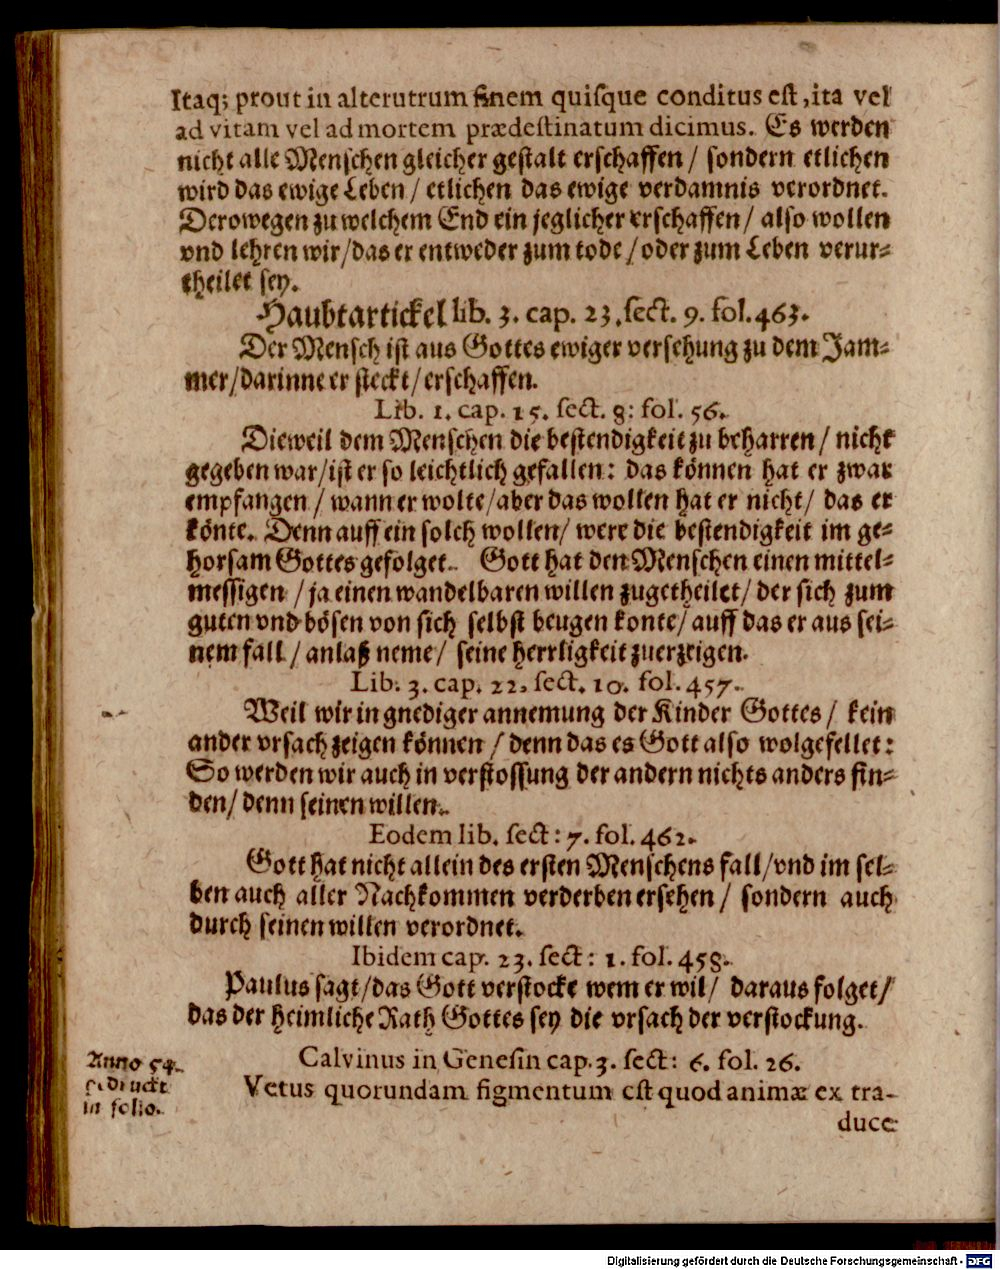 Itaq; prout in alterutrum finem quisque conditus est, ita vel
ad vitam vel ad mortem prædestinatum dicimus. Es werden
nicht alle Menschen gleicher gestalt erschaffen / sondern etlichen
wird das ewige Leben / etlichen das ewige verdamnis verordnet.
Derowegen zu welchem End ein jeglicher erschaffen / also wollen
vnd lehren wir / das er entweder zum tode / oder zum Leben verur⸗
theilet sey.
Haubtartickel lib. 3. cap. 23. sect. 9. fol. 463.
Der Mensch ist aus Gottes ewiger versehung zu dem Jam⸗
mer / darinne er steckt / erschaffen.
Lib. 1. cap. 15. sect. 8: fol. 56.
Dieweil dem Menschen die bestendigkeit zu beharren / nicht
gegeben war / ist er so leichtlich gefallen: das können hat er zwar
empfangen / wann er wolte / aber das wollen hat er nicht / das er
könte. Denn auff ein solch wollen / were die bestendigkeit im ge⸗
horsam Gottes gefolget. Gott hat den Menschen einen mittel⸗
messigen / ja einen wandelbaren willen zugetheilet / der sich zum
guten vnd bösen von sich selbst beugen konte / auff das er aus sei⸗
nem fall / anlaß neme / seine herrligkeit zuerzeigen.
Lib. 3. cap. 22, sect. 10. fol. 457.
Weil wir in gnediger annemung der Kinder Gottes / kein
ander vrsach zeigen können / denn das es Gott also wolgefellet:
So werden wir auch in verstossung der andern nichts anders fin⸗
den / denn seinen willen.
Eodem lib. sect: 7. fol. 462.
Gott hat nicht allein des ersten Menschens fall / vnd im sel⸗
ben auch aller Nachkommen verderben ersehen / sondern auch
durch seinen willen verordnet.
Ibidem cap. 23. sect: 1. fol. 458.
Paulus sagt / das Gott verstocke wem er wil / daraus folget /
das der heimliche Rath Gottes sey die vrsach der verstockung.
Anno 54.
gedruckt
in folio.
Calvinus in Genesin cap. 3. sect: 6. fol. 26.
Vetus quorundam figmentum est quod animæ ex tra-
duce
Digitalisierung gefördert durch die Deutsche Forschungsgemeinschaft - DFG